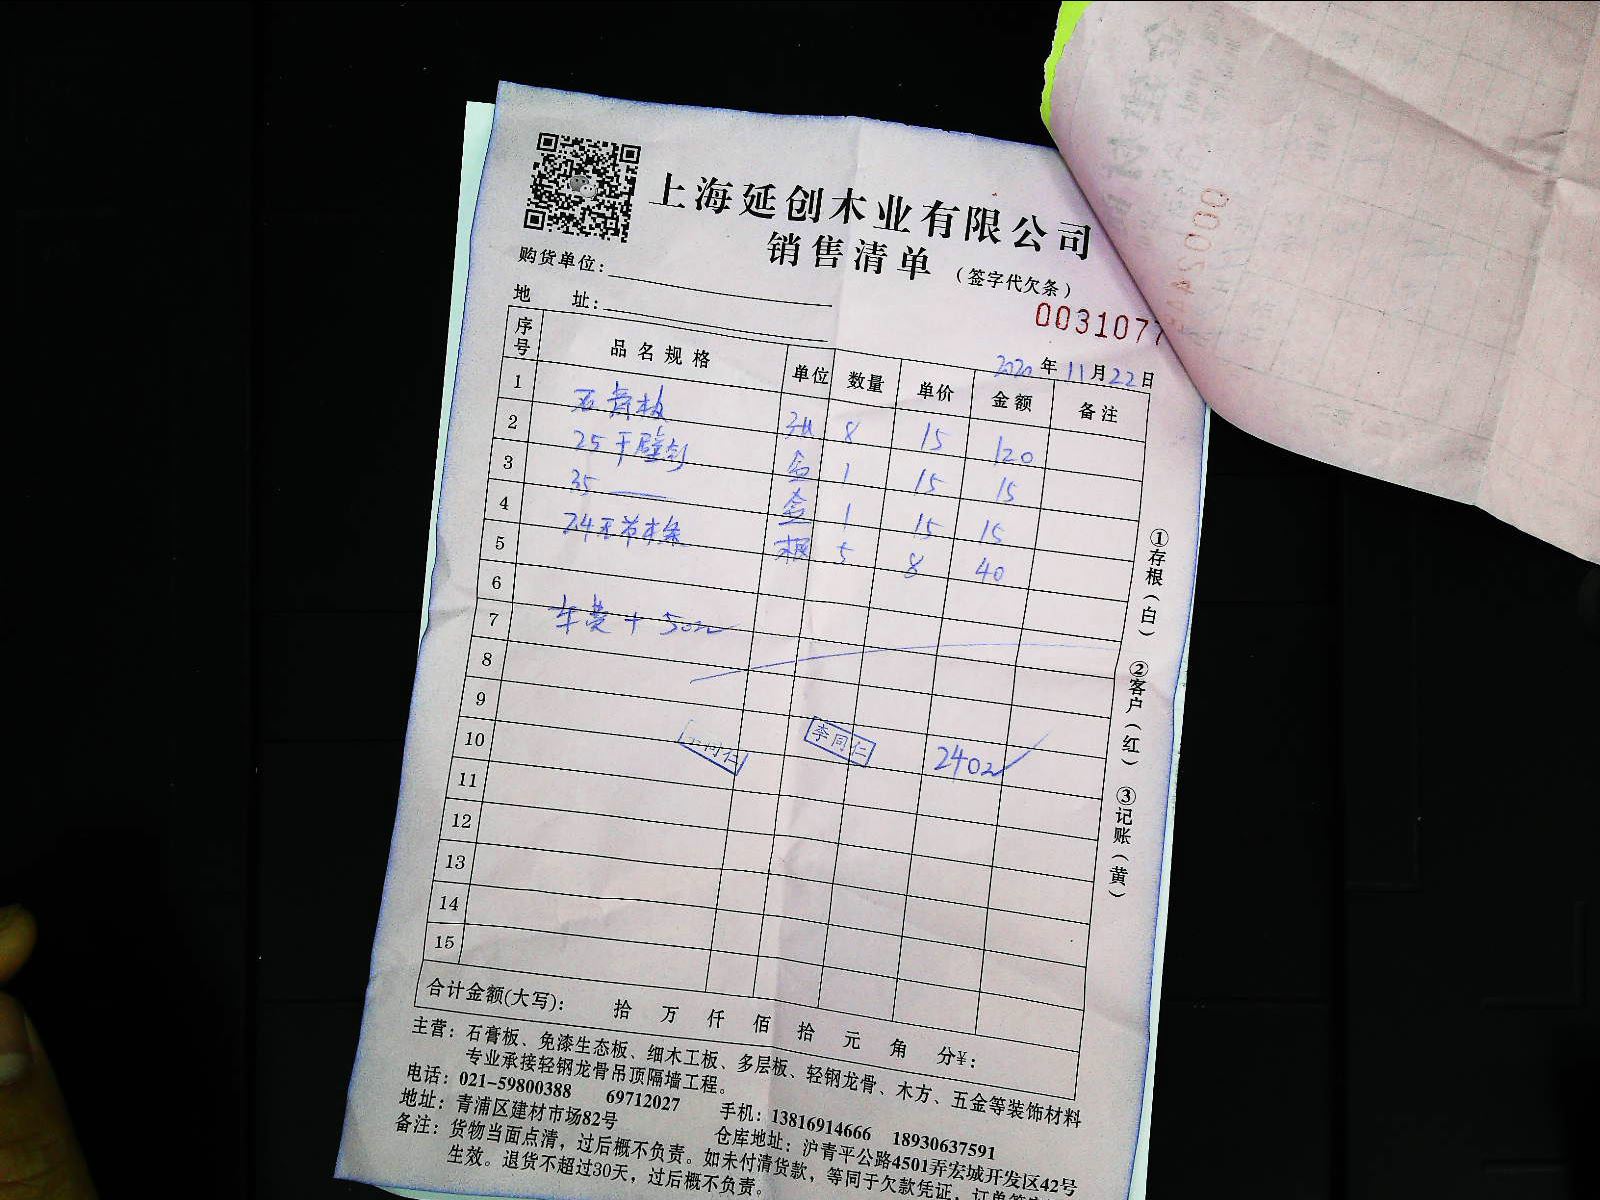 上海延创木业有限公司
销售清单（签字代欠条）
购货单位：
地 址：
0031077
2020年11月22日
序号 品名规格 单位 数量 单价 金额 备注
1 石膏板 张 8 15 120
2 25干壁钉 盒 1 15 15
3 35 —— 盒 1 15 15
4 24无节木条 根 5 8 40
5
6
7 车费+50元
8
9
10 李同仁 240元
11
12
13
14
15
合计金额(大写)： 拾 万 仟 佰 拾 元 角 分¥：
主营：石膏板、免漆生态板、细木工板、多层板、轻钢龙骨、木方、五金等装饰材料
专业承接轻钢龙骨吊顶隔墙工程。
电话：021-59800388 69712027 手机：13816914666 18930637591
地址：青浦区建材市场82号 仓库地址：沪青平公路4501弄宏城开发区42号
备注：货物当面点清，过后概不负责。如未付清货款，等同于欠款凭证，订单签字
生效。退货不超过30天，过后概不负责。
①存根（白） ②客户（红） ③记账（黄）